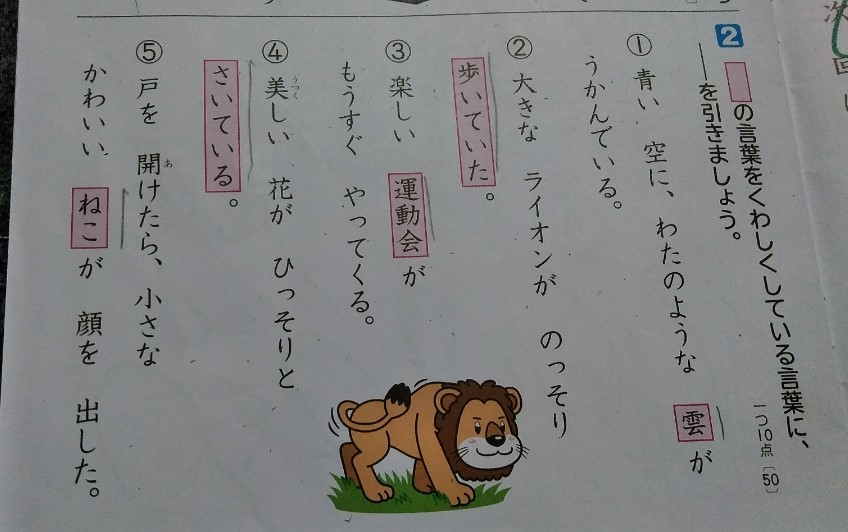 2 □の言葉をくわしくしている言葉に、
――を引きましょう。
一つ10点〔50〕
① 青い 空に、わたのような 雲が
うかんでいる。
② 大きな ライオンが のっそり
歩いていた。
③ 楽しい 運動会が
もうすぐ やってくる。
④ 美しい 花が ひっそりと
うつく
さいている。
⑤ 戸を 開けたら、小さな
あ
かわいい ねこが 顔を 出した。